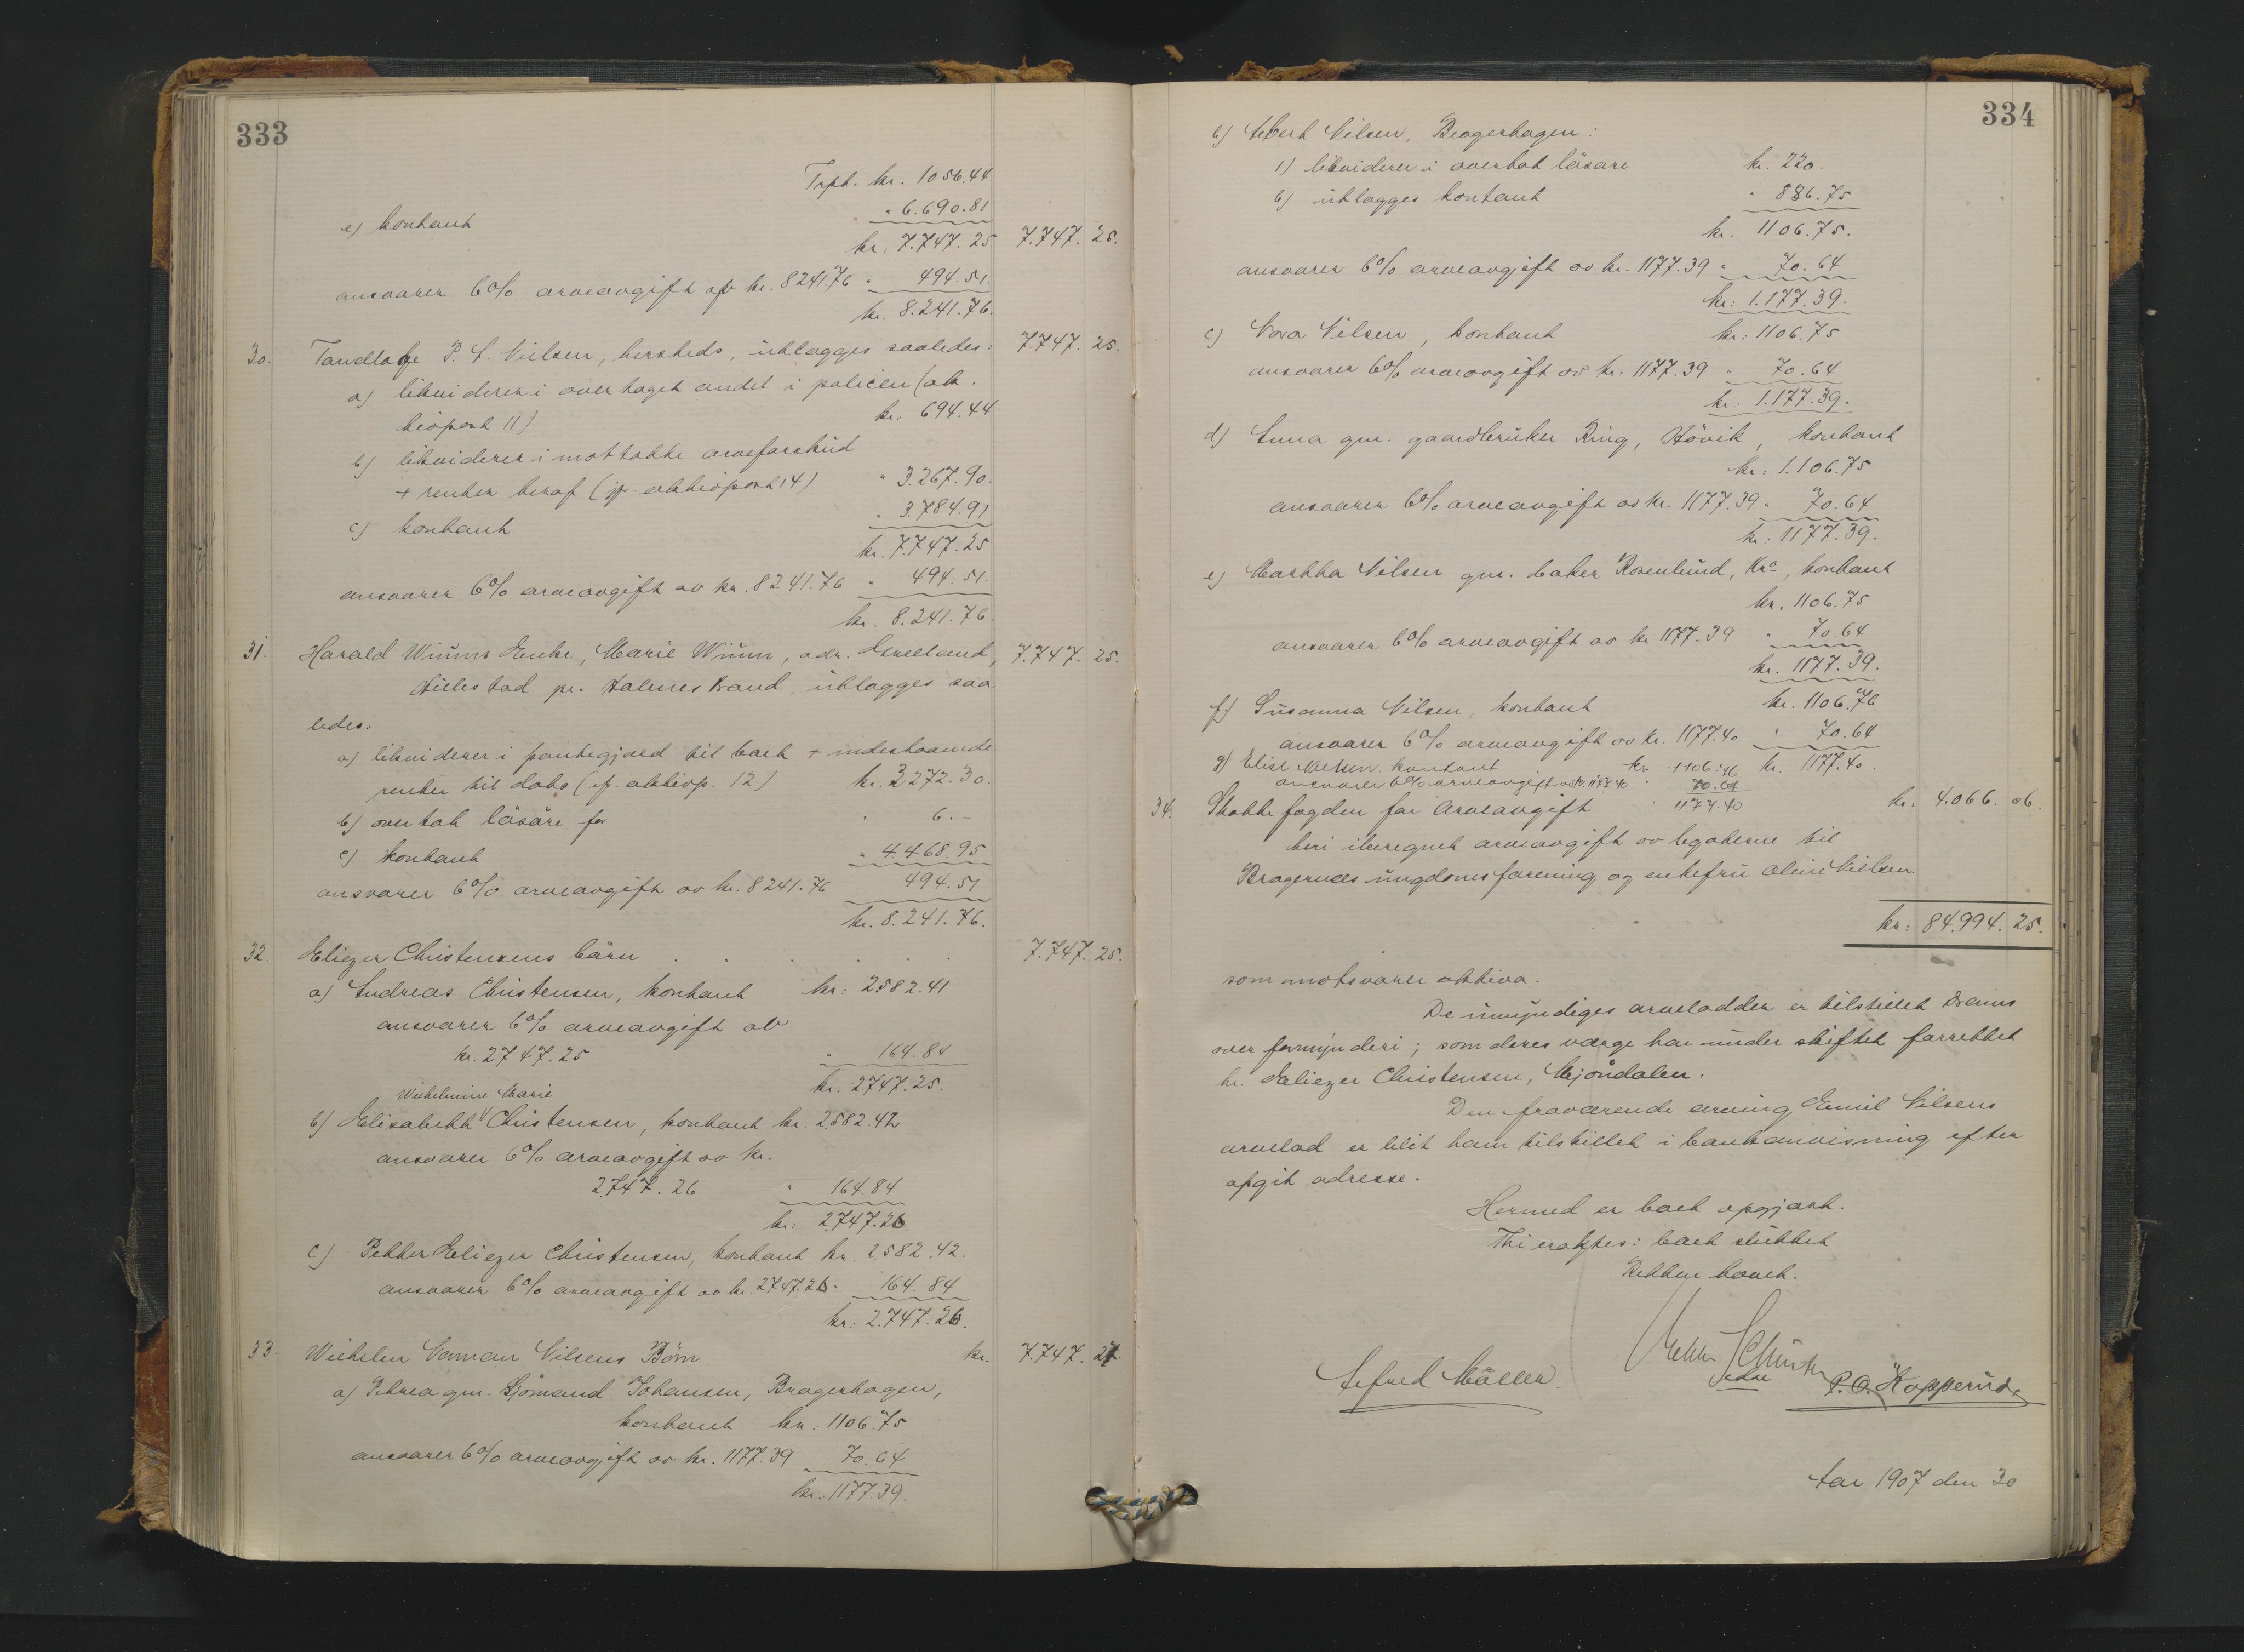 333
Trpt. kr. 1056.44
e) kontant " 6.690.81
kr. 7.747.25 7.747.25.
ansvarer 6% arveavgift av kr. 8241.76 " 494.51.
kr. 8.241.76.
30. Tandlæge P. L. Nielsen, hersteds, utlægges saaledes: 7.747.25.
a) likviderer i overtaget andel i policen (ak.
tivpost 11) kr. 694.44
b) likviderer i mottatte arveforskud
+ renter herav (jp. aktivpost 14) " 3.267.90.
c) kontant " 3.784.91
kr. 7.747.25
ansvarer 6% arveavgift av kr. 8241.76 " 494.51.
kr. 8.241.76.
31. Harald Wiums Enke, Marie Wium, adr. 7.747.25.
Hillestad pr. Holmestrand, utlægges saa
ledes:
a) likviderer i pantegjæld til boet + indestaaende
renter til dato (jp. aktivp. 12) kr. 3272.30.
b) overtat løsøre for " 6.-
c) kontant " 4.468.95
ansvarer 6% arveavgift av kr. 8241.76 494.51
kr. 8.241.76.
32. Eliezer Christensens børn . . . . . 7.747.25.
a) Andreas Christensen, kontant kr: 2582.41
ansvarer 6% arveavgift av
kr. 2747.25 " 164.84
kr. 2747.25.
Wilhelmine Marie
b) Elisabeth Christensen, kontant kr. 2582.42
ansvarer 6% arveavgift av kr.
2747.26 " 164.84
kr: 2747.26.
c) Petter Eliezer Christensen, kontant kr. 2582.42.
ansvarer 6% arveavgift av kr. 2747.26. 164.84
kr: 2.747.26.
33. Wilhelm Herman Nilsens Børn kr. 7.747.27
a) Petrea gm. Sjømand Johansen, Bragerhagen,
kontant kr. 1106.75
ansvarer 6% arveavgift av kr. 1177.39 70.64
kr. 1177.39.
334
b) Albert Nilsen, Bragerhagen:
1) likviderer i overtat løsøre kr. 220.
b) utlægges kontant " 886.75
kr. 1106.75.
ansvarer 6% arveavgift av kr. 1177.39 " 70.64
kr: 1.177.39.
c) Nora Nilsen, kontant kr: 1106.75
ansvarer 6% arveavgift av kr. 1177.39 " 70.64
kr: 1.177.39.
d) Anna gm. gaardbruker Ring, Høvik, kontant
kr: 1.106.75
ansvarer 6% arveavgift av kr. 1177.39 " 70.64
kr: 1177.39.
e) Martha Nilsen gm. baker Rosenlund, Kra, kontant
kr. 1106.75
ansvarer 6% arveavgift av kr 1177.39 " 70.64
kr. 1177.39.
f) Susanna Nilsen, kontant kr. 1106.76
ansvarer 6% arveavgift av kr. 1177.40 " 70.64
kr. 1177.40.
g) Elise Nielsen kontant kr. 1106:76
ansvarer 6% arveavgift av kr. 1177.40 " 70.64
1177.40
34. Skattefogden for Arveavgift kr: 4.066.06.
heri iberegnet arveavgift av legaterne til
Bragernæs ungdomsforening og enkefru Oline Nielsen.
kr: 84.994.25.
som motsvarer aktiva.
De umyndiges arvelodder er tilstillet Drams
overformynderi; som deres værge har under skiftet forrettet
hr. Eliezer Christensen, Mjøndalen.
Den fraværende arving Emil Nilsens
arvelod er blit ham tilstillet i bankanvisning efter
opgit adresse.
Hermed er boet opgjort.
Thi eragtes: boet sluttet
Retten hævet.
Alfred Møller. P. O. Kopperud.
Aar 1907 den 30